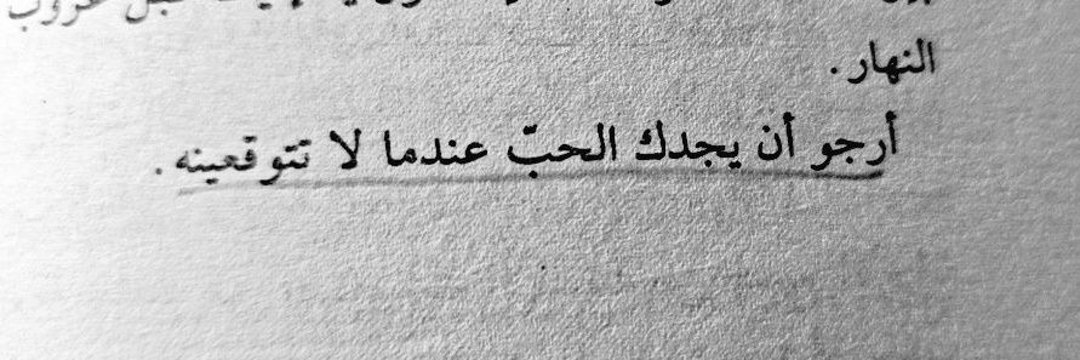 قبل غروب
النهار.
أرجو أن يجدك الحبّ عندما لا تتوقعينه.